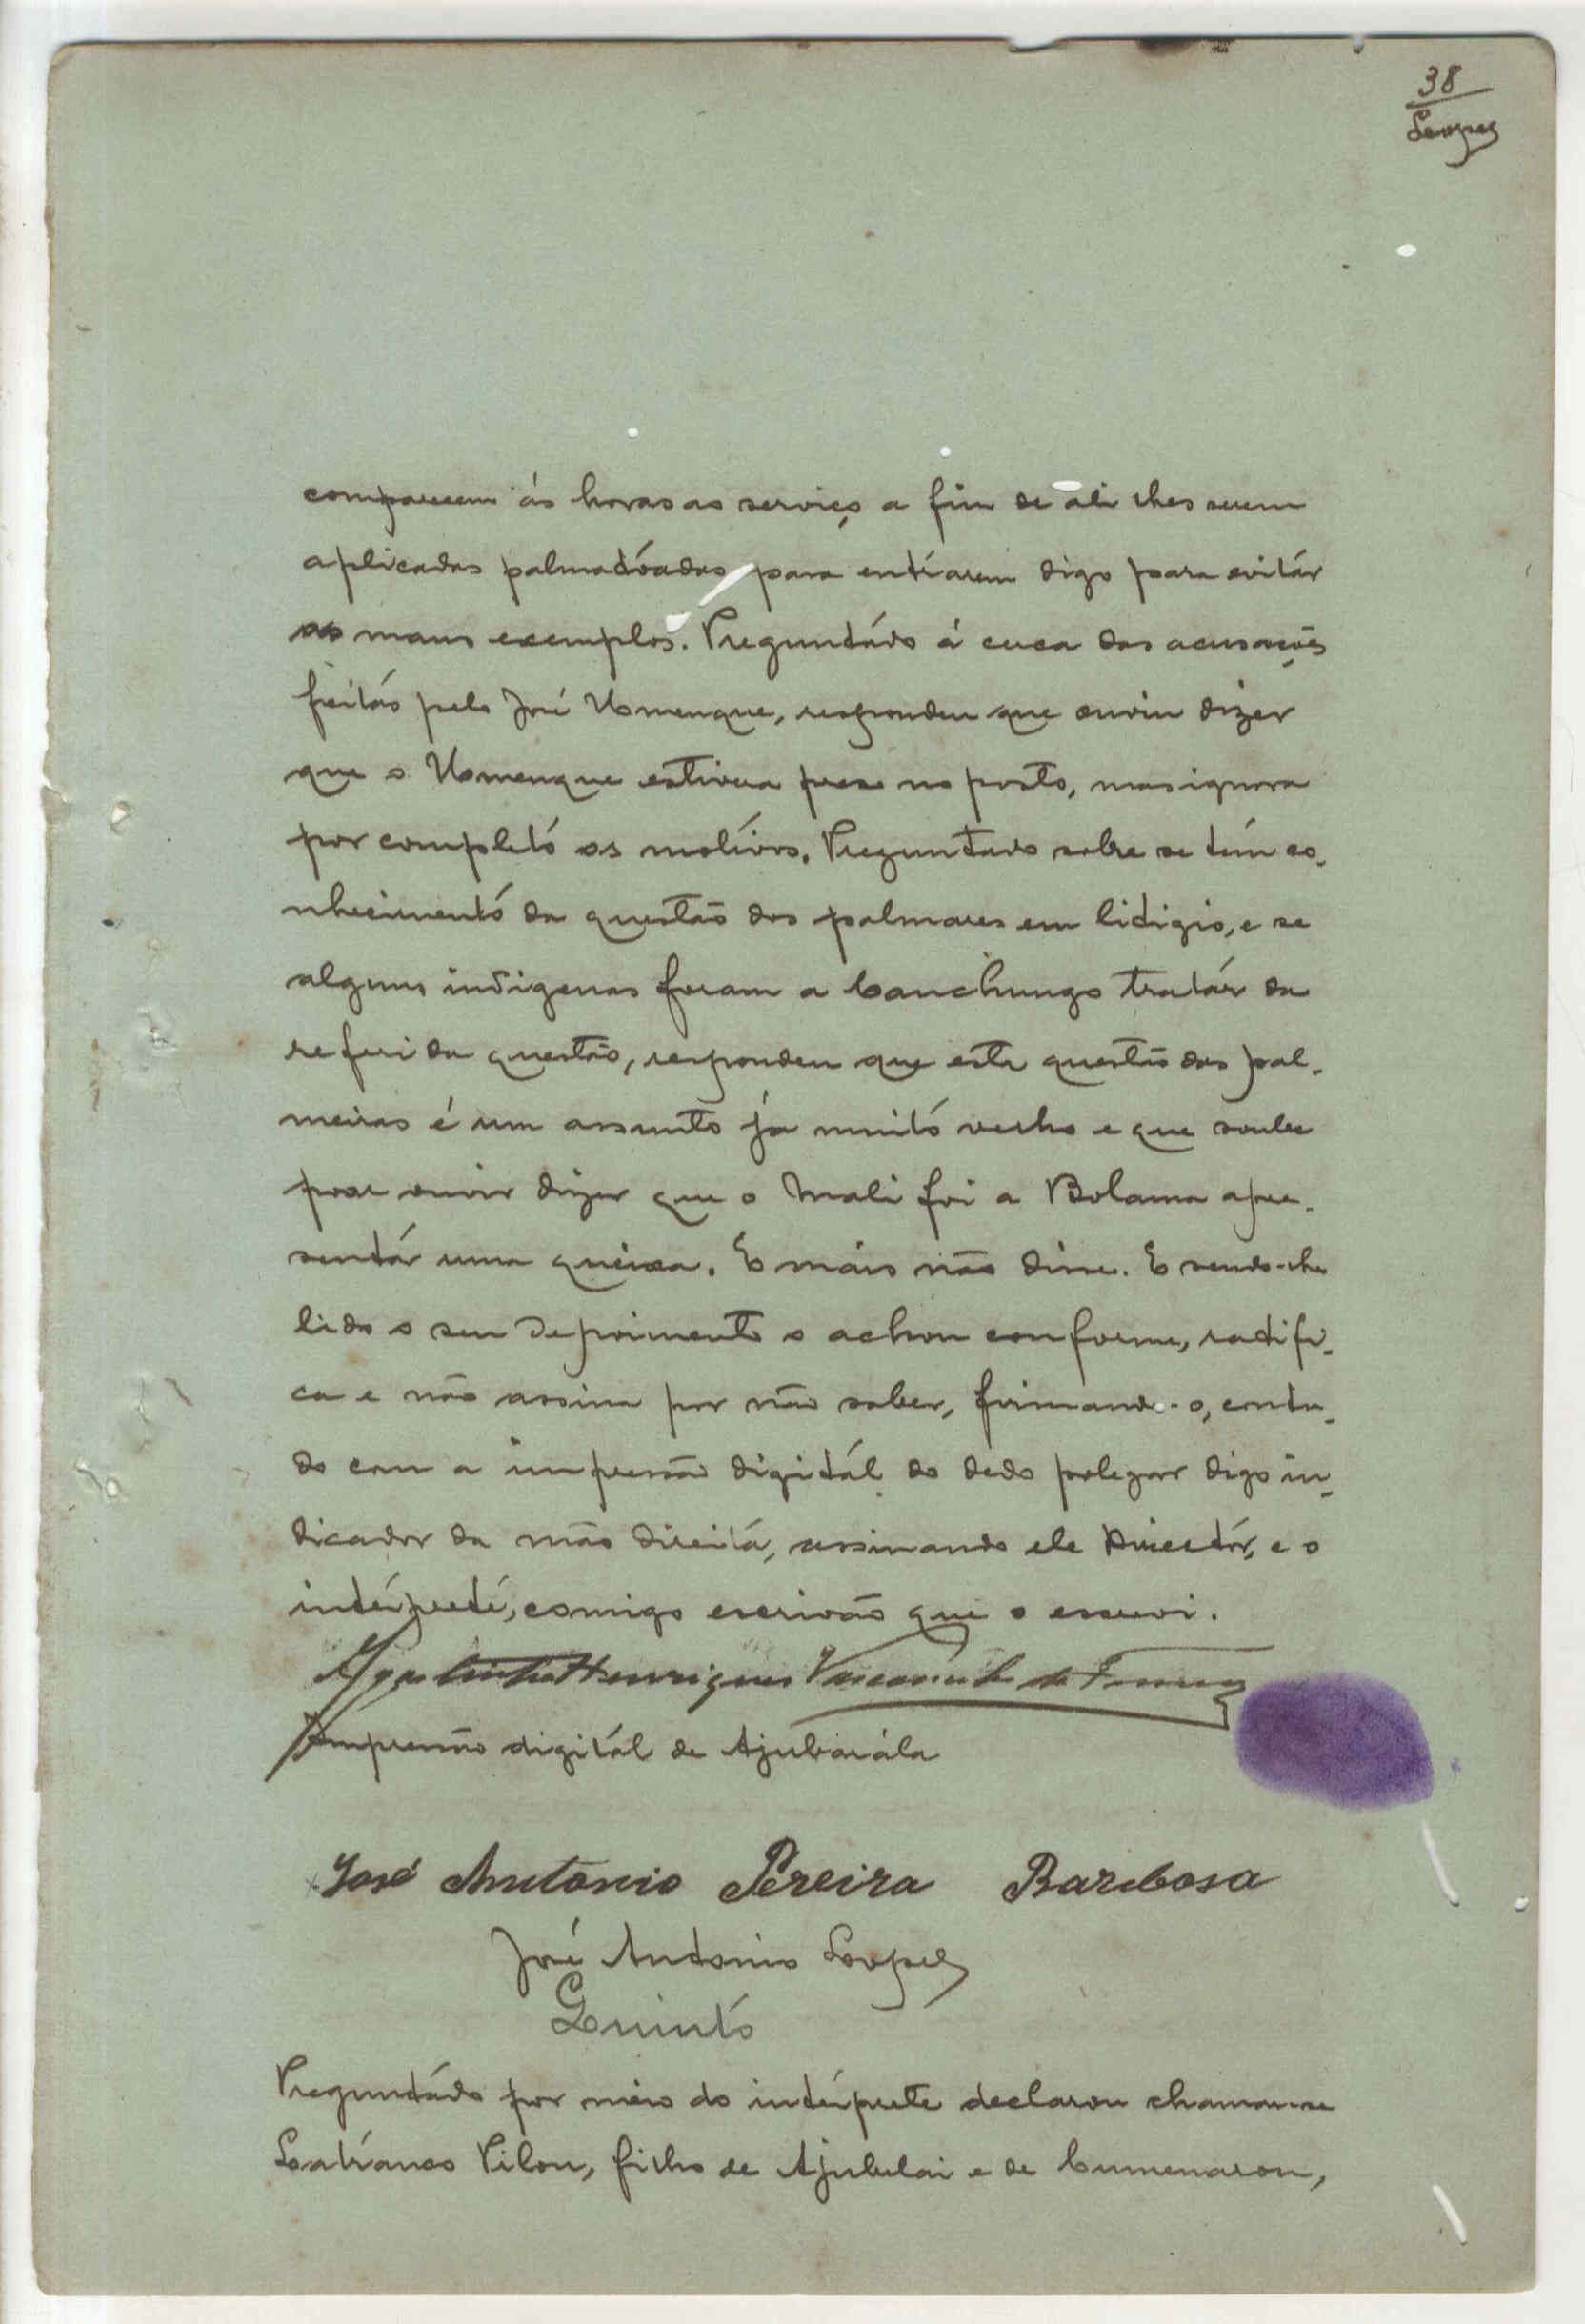 38
Lopes
comparecem ás horas ao serviço a fim de ali lhes serem
aplicadas palmatóadas para entíarem digo para evitár
os maus exemplos. Preguntádo á cerca das acusações
feitás pelo José Uomenque, respondeu que ouviu dizer
que o Uomenque estivera preso no posto, mas ignora
por completó os motívos. Preguntado sobre se tem co-
nhecimentó da questão dos palmares em lidigio, e se
alguns indigenas foram a Canchungo tratár da
referida questão, respondeu que esta questão das pal-
meiras é um assunto já muitó velho e que soube
por ouvir dizer que o Mali foi a Bolama apre-
sentár uma queixa. E máis não disse. E sendo-lhe
lido o seu depoimento o achou conforme, ratifi-
ca e não assina por não saber, firmando-o, contu-
do com a impressão digitál do dedo polegar digo in-
dicador da mão direitá, assinando ele Director, e o
intérpreté, comigo escrivão que o escrevi.
Agostinho Henriques Vasconcelos de
Impressão digitál de Ajubaiála
José Antonio Pereira Barbosa
José Antonio Lopes
Quintó
Preguntádo por méio do intérprete declarou chamar-se
Latíanco Pilou, filho de Ajubulai e de Cumenarou,